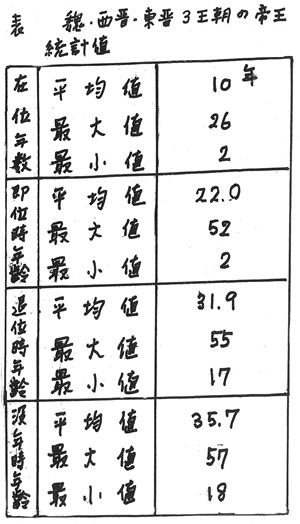 表 魏・西晋・東晋3王朝の帝王
統計値
在位年数 平均値 10年
最大値 26
最小値 2
即位時年齢 平均値 22.0
最大値 52
最小値 2
退位時年齢 平均値 31.9
最大値 55
最小値 17
没年時年齢 平均値 35.7
最大値 57
最小値 18